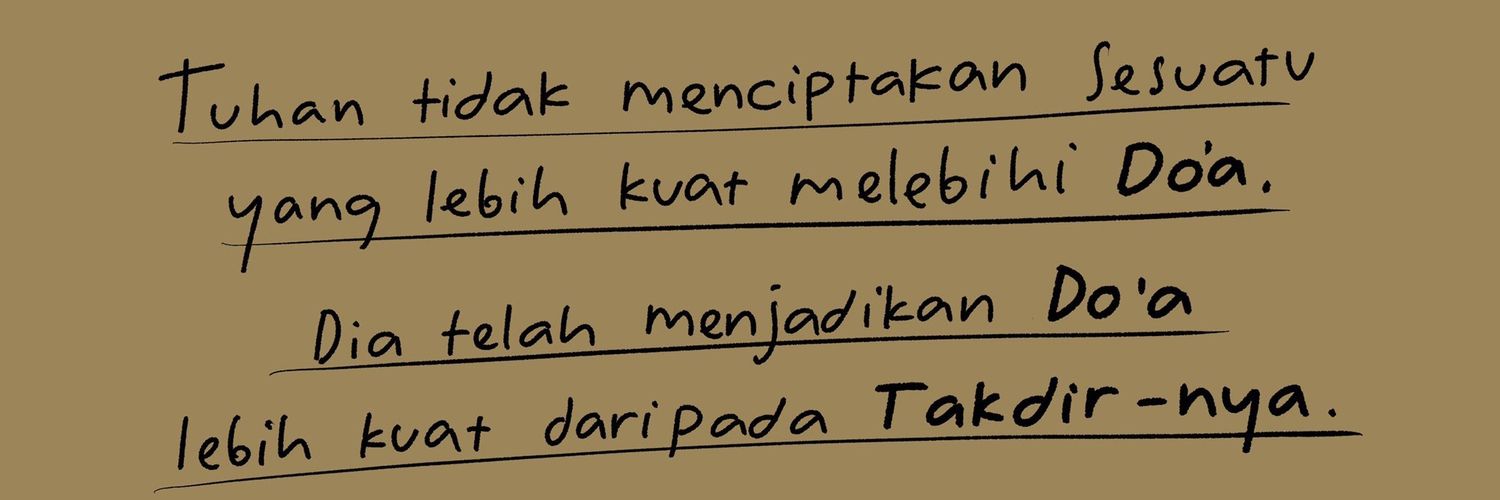 Tuhan tidak menciptakan Sesuatu
yang lebih kuat melebihi Do'a.
Dia telah menjadikan Do'a
lebih kuat daripada Takdir-nya.